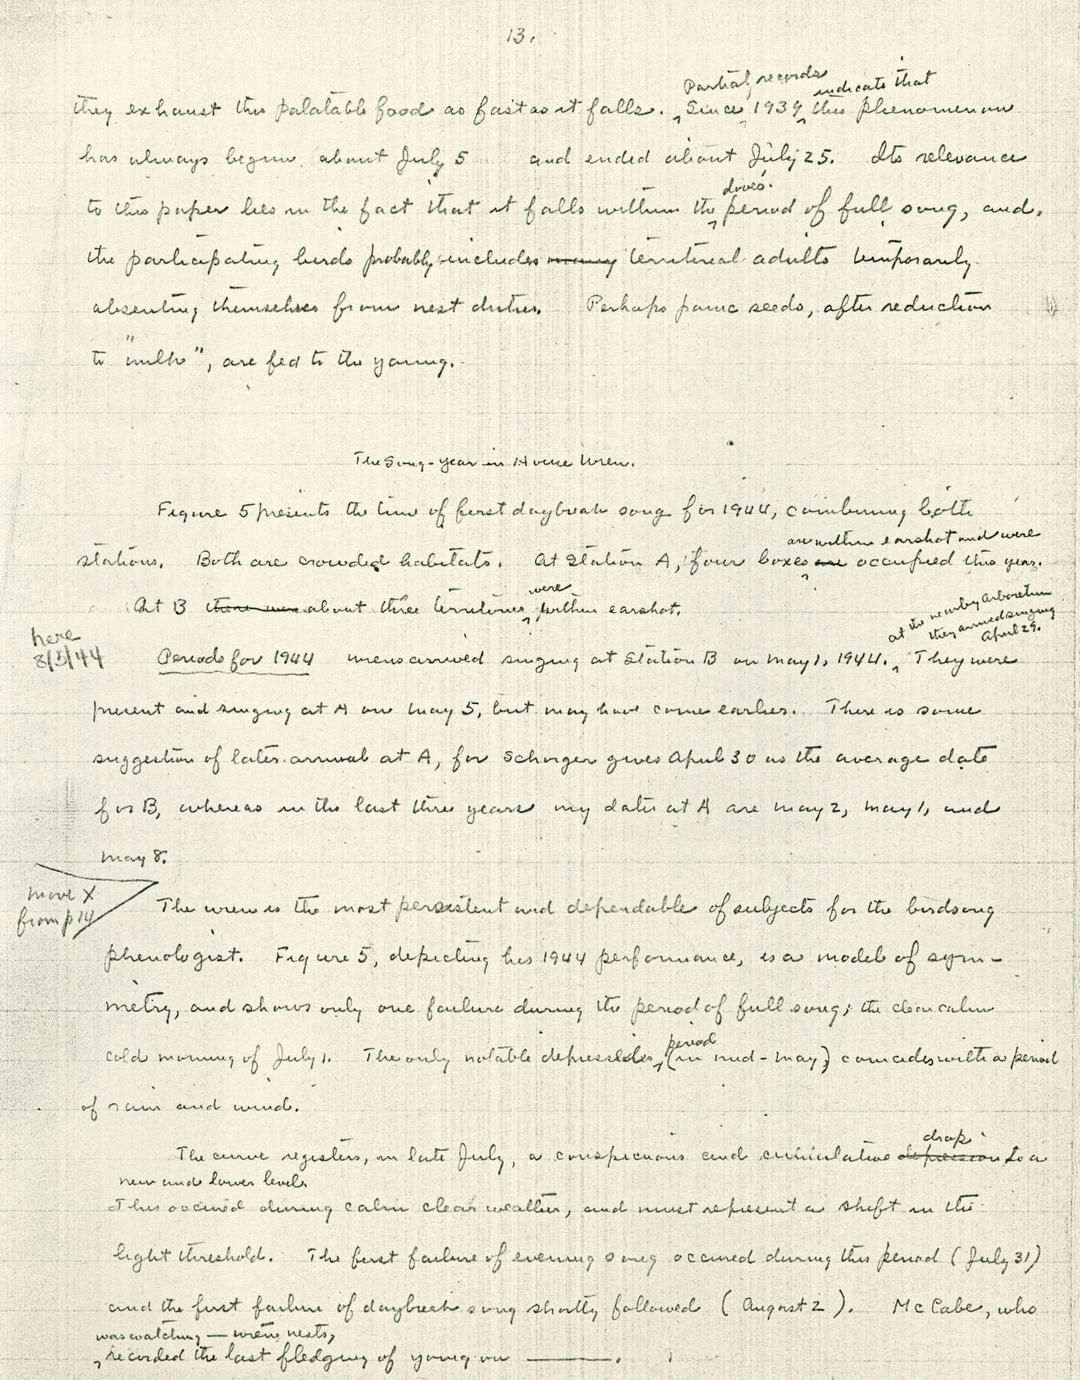 13.
Partial records indicate that
they exhaust this palatable food as fast as it falls. Since 1939 this phenomenon
has always begun about July 5 and ended about July 25. Its relevance
doves'
to this paper lies in the fact that it falls within the period of full song, and
the participating birds probably includes many territorial adults temporarily
absenting themselves from nest duties. Perhaps panic seeds, after reduction
to "milk", are fed to the young.
The Song-year in House Wren.
Figure 5 presents the time of first daybreak song for 1944, combining both
are within earshot and were
stations. Both are crowded habitats. At Station A, four boxes are occupied this year.
were
At B there were about three territories within earshot.
at the nearby Arboretum
they arrived singing
April 29.
here
8/5/44
Periods for 1944 wrens arrived singing at Station B on May 1, 1944. They were
present and singing at A on May 5, but may have come earlier. There is some
suggestion of later arrival at A, for Schorger gives April 30 as the average date
for B, whereas in the last three years my dates at A are May 2, May 1, and
May 8.
move X
from p 14
The wren is the most persistent and dependable of subjects for the birdsong
phenologist. Figure 5, depicting his 1944 performance, is a model of sym-
metry, and shows only one failure during the period of full song; the clear calm
period
cold morning of July 1. The only notable (in mid-May) coincides with a period
of rain and wind.
drop
The curve registers, in late July, a conspicuous and cumulative depression to a
new and lower level.
This occured during calm clear weather, and must represent a shift in the
light threshold. The first failure of evening song occured during this period (July 31)
and the first failure of daybreak song shortly followed (August 2). McCabe, who
was watching — wren nests,
recorded the last fledging of young on ———.